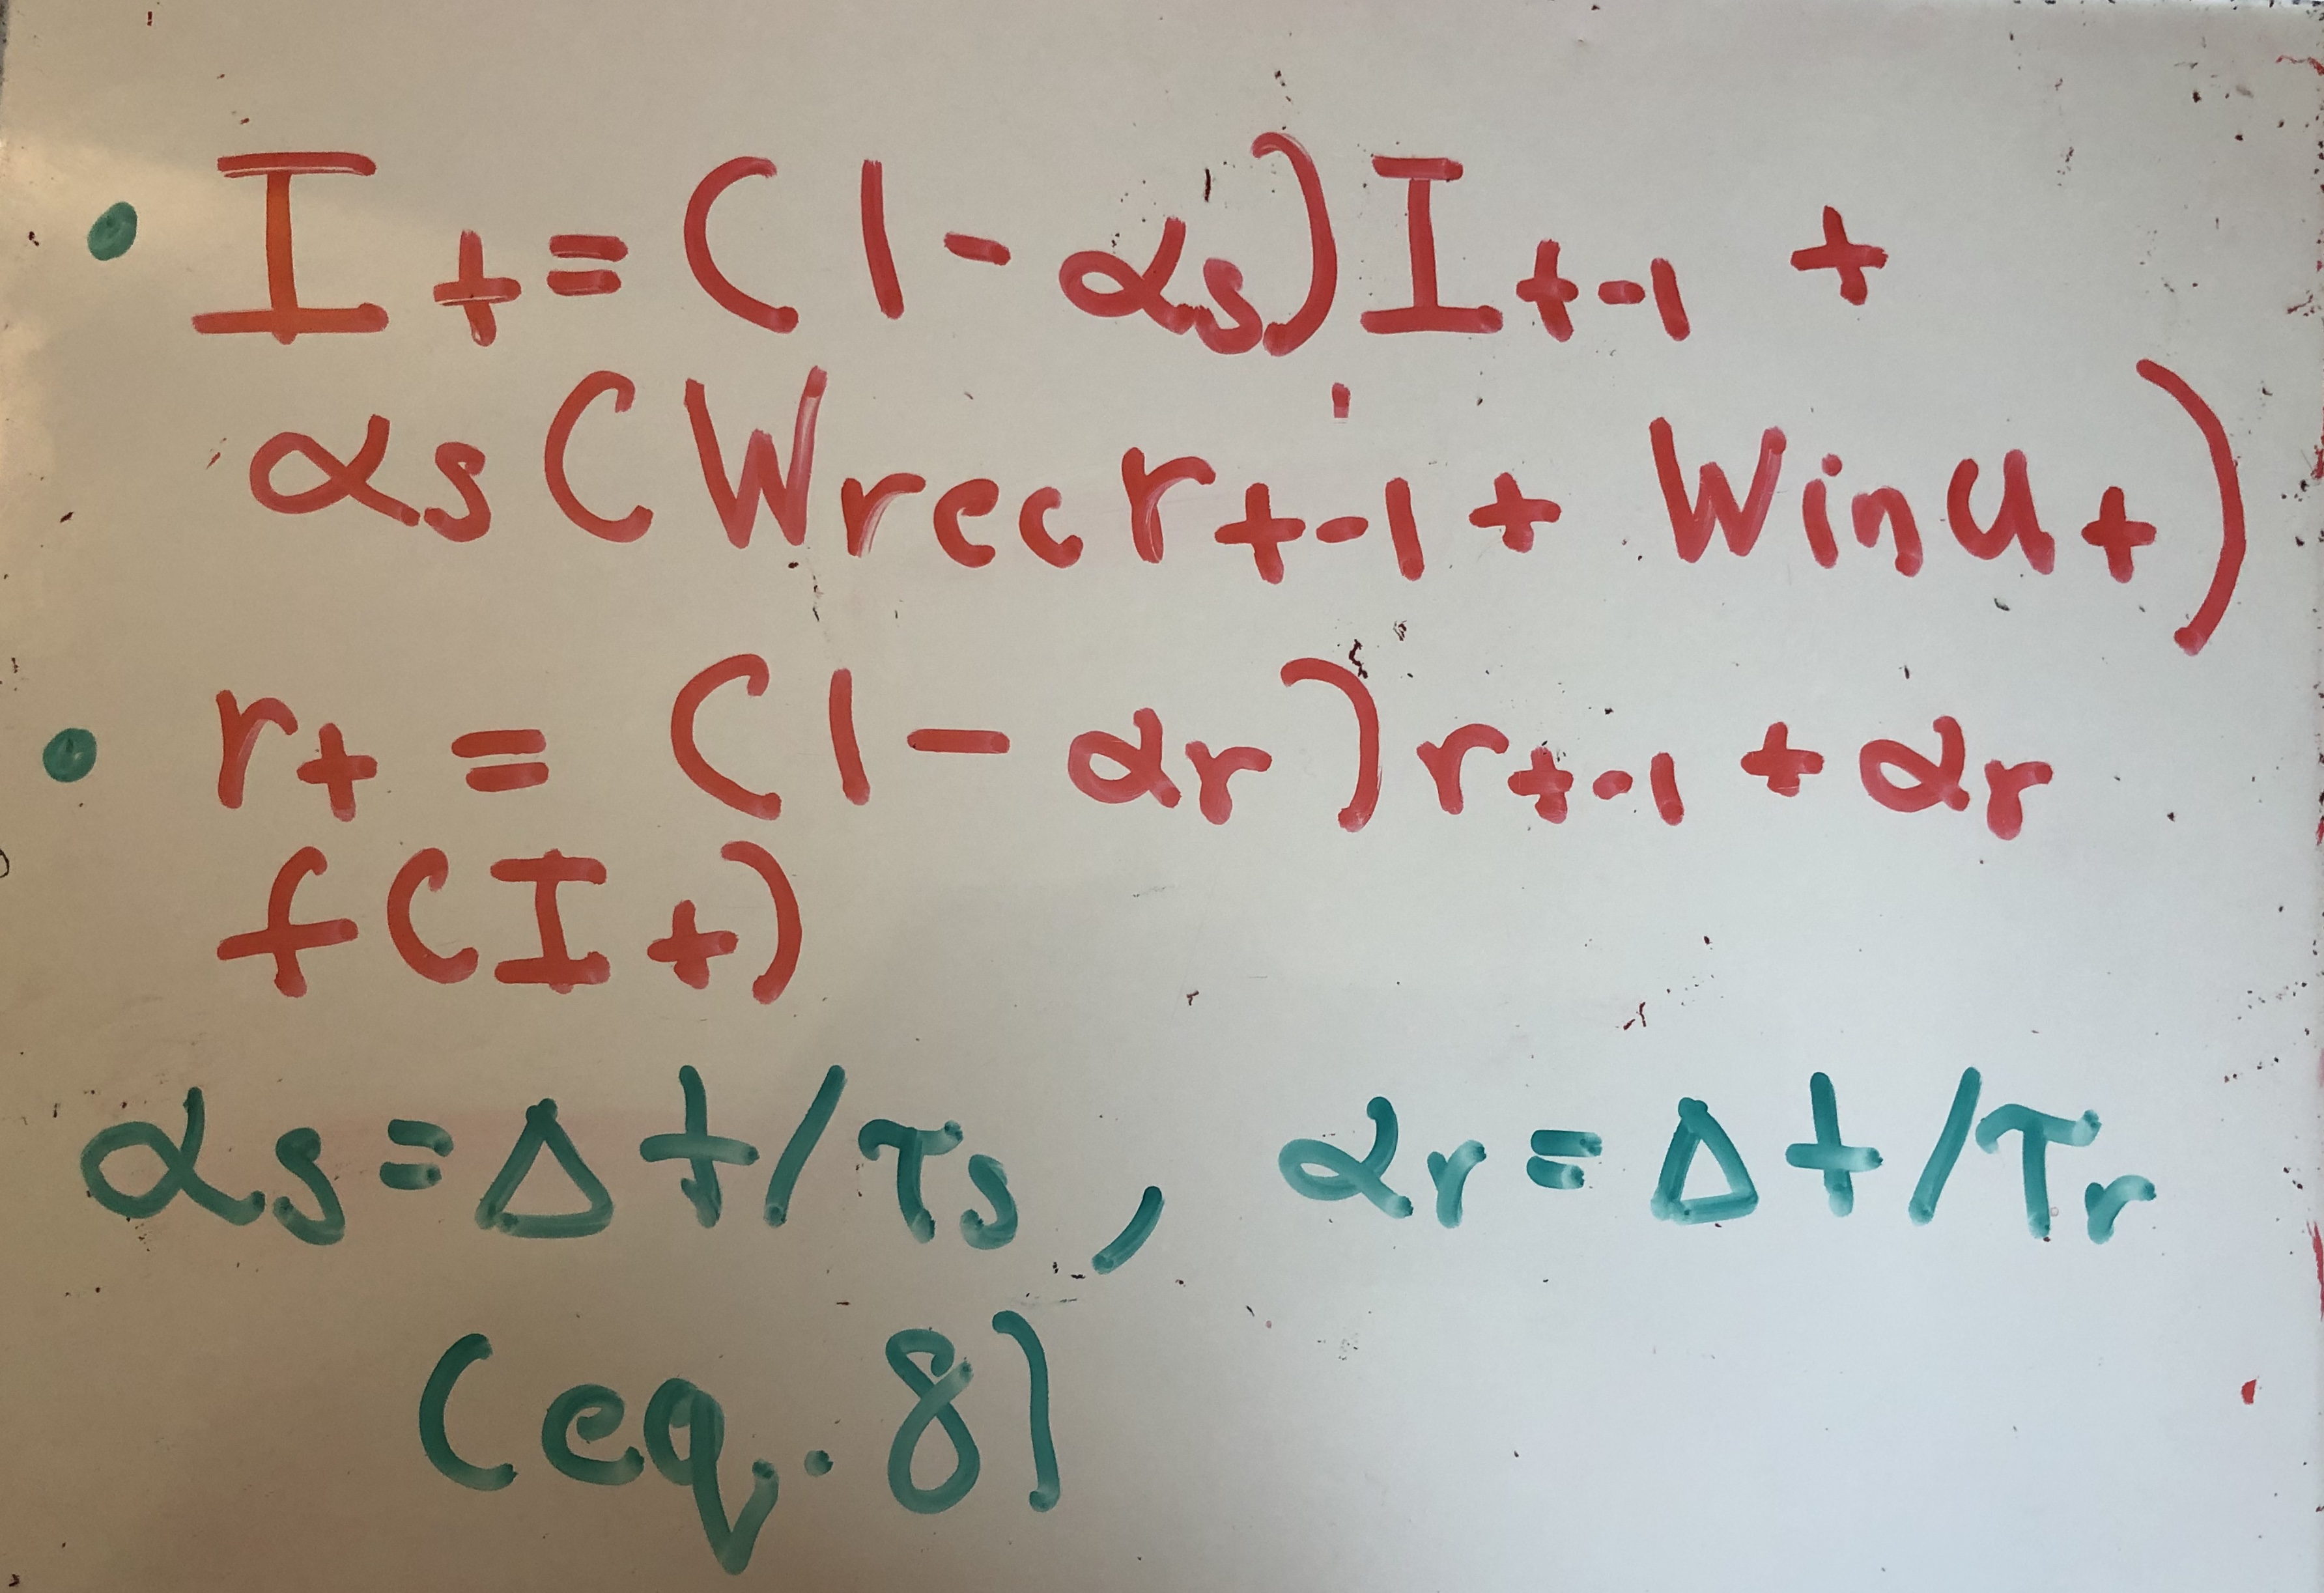 • I_t = (1 - α_s) I_{t-1} +
α_s (W_rec r_{t-1} + W_in u_t)
• r_t = (1 - α_r) r_{t-1} + α_r
f(I_t)
α_s = Δt/τ_s , α_r = Δt/τ_r
(eq. 8)